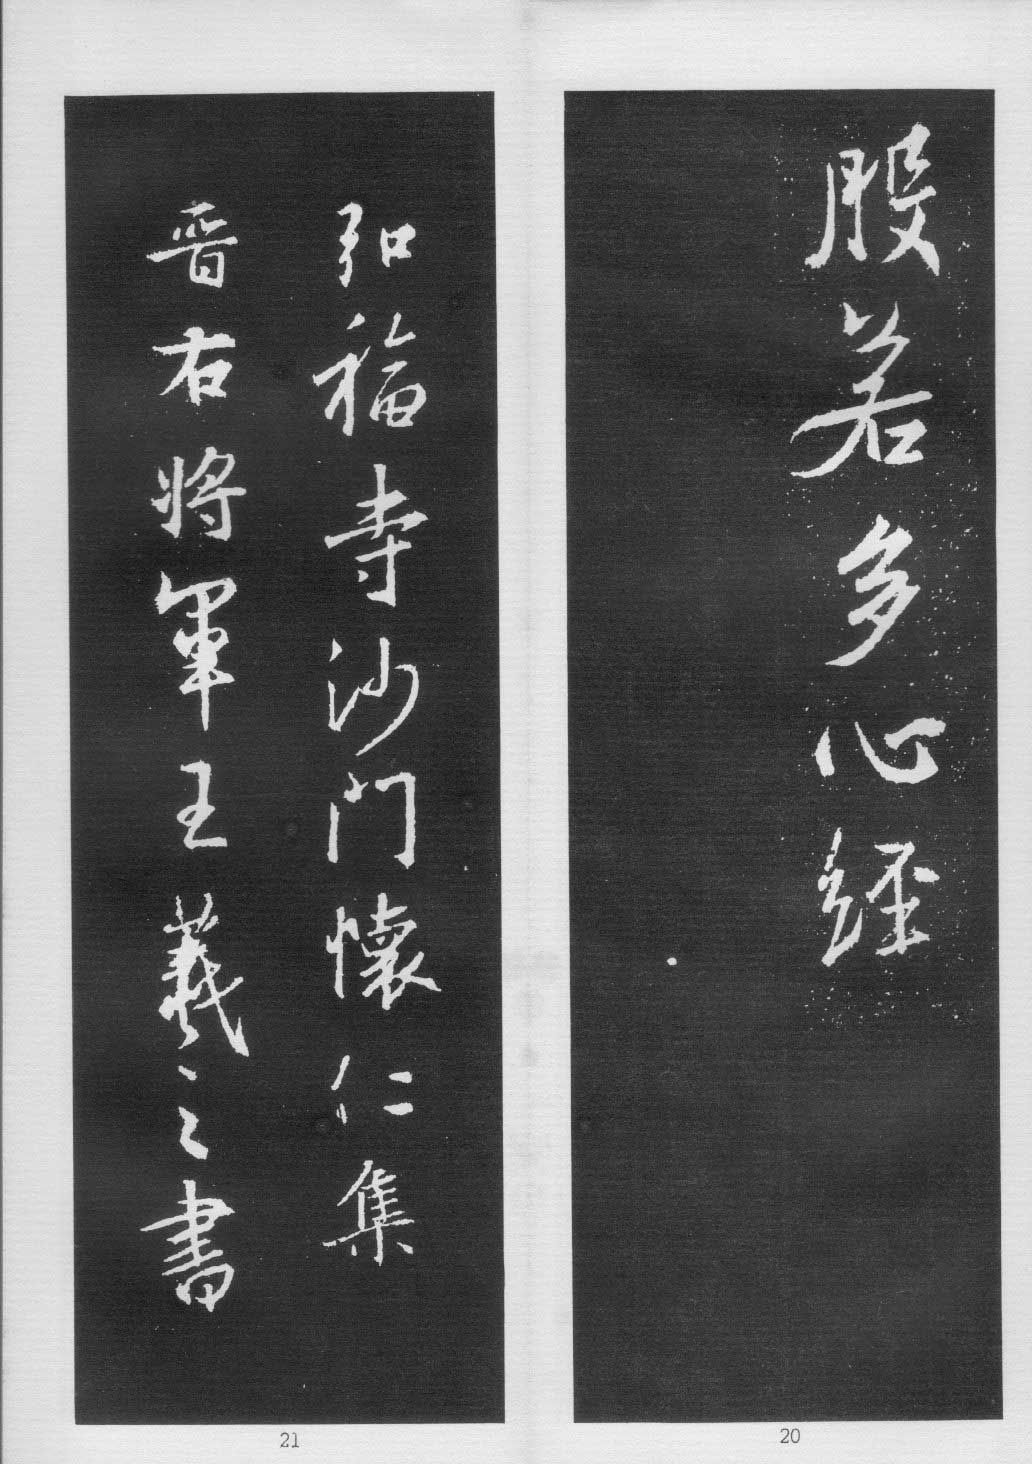 般若多心經
20
弘福寺沙門懷仁集
晉右將軍王羲之書
21